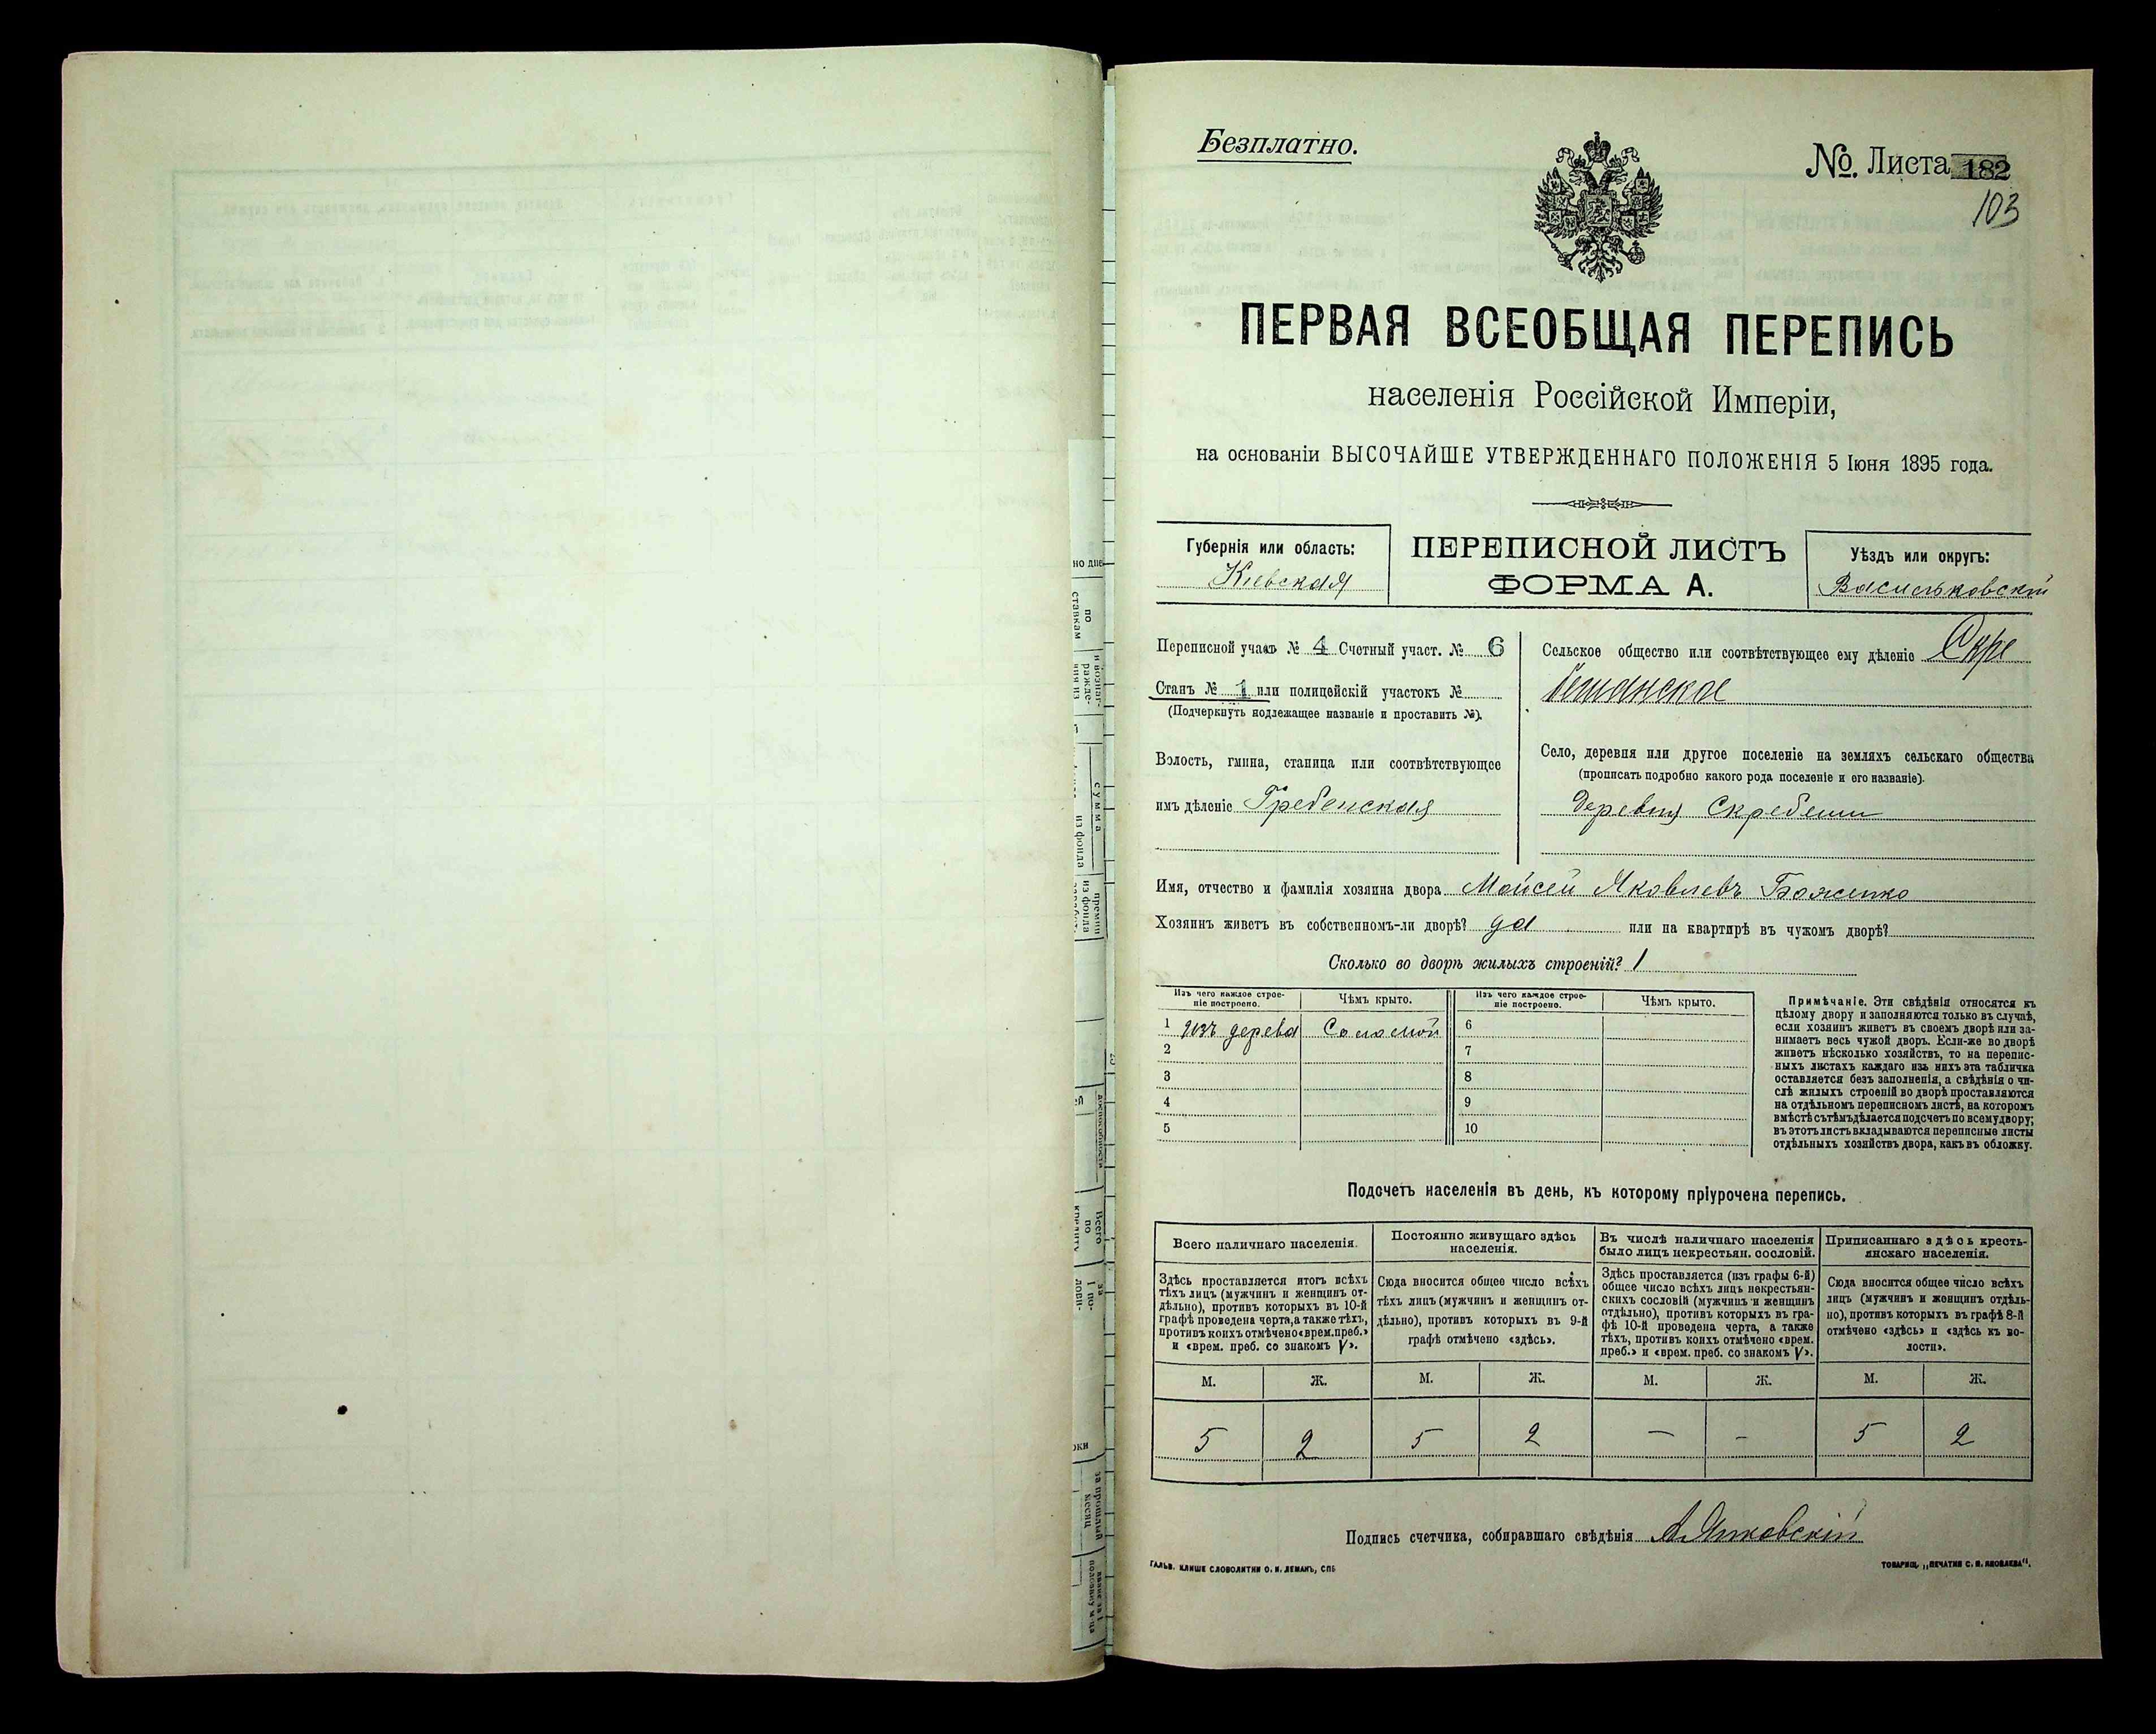 Безплатно.
№. Листа 182
103
ПЕРВАЯ ВСЕОБЩАЯ ПЕРЕПИСЬ
населенія Россійской Имперіи,
на основаніи ВЫСОЧАЙШЕ УТВЕРЖДЕННАГО ПОЛОЖЕНІЯ 5 Іюня 1895 года.
Губернія или область:
Кіевская
ПЕРЕПИСНОЙ ЛИСТЪ
ФОРМА А.
Уѣздъ или округъ:
Васильковскій
Переписной участ. № 4 Счетный участ. № 6
Станъ № 1 или полицейскій участокъ №
(Подчеркнуть подлежащее названіе и проставить №).
Волость, гмина, станица или соотвѣтствующее
имъ дѣленіе Гребенская
Сельское общество или соотвѣтствующее ему дѣленіе Скре
бешанское
Село, деревня или другое поселеніе на земляхъ сельскаго общества
(прописать подробно какого рода поселеніе и его названіе).
Деревня Скребеши
Имя, отчество и фамилія хозяина двора Мойсей Яковлевъ Боженко
Хозяинъ живетъ въ собственномъ-ли дворѣ? да или на квартирѣ въ чужомъ дворѣ?
Сколько во дворѣ жилыхъ строеній? 1
Изъ чего каждое строе-
ніе построено.
Чѣмъ крыто.
Изъ чего каждое строе-
ніе построено.
Чѣмъ крыто.
1 изъ дерева Соломой 6
2 7
3 8
4 9
5 10
Примѣчаніе. Эти свѣдѣнія относятся къ
цѣлому двору и заполняются только въ случаѣ,
если хозяинъ живетъ въ своемъ дворѣ или за-
нимаетъ весь чужой дворъ. Если-же во дворѣ
живетъ нѣсколько хозяйствъ, то на перепис-
ныхъ листахъ каждаго изъ нихъ эта табличка
оставляется безъ заполненія, а свѣдѣнія о чи-
слѣ жилыхъ строеній во дворѣ проставляются
на отдѣльномъ переписномъ листѣ, на которомъ
вмѣстѣ съ тѣмъ дѣлается подсчетъ по всему двору;
въ этотъ листъ вкладываются переписные листы
отдѣльныхъ хозяйствъ двора, какъ въ обложку.
Подсчетъ населенія въ день, къ которому пріурочена перепись.
Всего наличнаго населенія.
Здѣсь проставляется итогъ всѣхъ
тѣхъ лицъ (мужчинъ и женщинъ от-
дѣльно), противъ которыхъ въ 10-й
графѣ проведена черта, а также тѣхъ,
противъ коихъ отмѣчено «врем. преб.»
и «врем. преб. со знакомъ V».
Постоянно живущаго здѣсь
населенія.
Сюда вносится общее число всѣхъ
тѣхъ лицъ (мужчинъ и женщинъ от-
дѣльно), противъ которыхъ въ 9-й
графѣ отмѣчено «здѣсь».
Въ числѣ наличнаго населенія
было лицъ некрестьян. сословій.
Здѣсь проставляется (изъ графы 6-й)
общее число всѣхъ лицъ некрестьян-
скихъ сословій (мужчинъ и женщинъ
отдѣльно), противъ которыхъ въ гра-
фѣ 10-й проведена черта, а также
тѣхъ, противъ коихъ отмѣчено «врем.
преб.» и «врем. преб. со знакомъ V».
Приписаннаго здѣсь кресть-
янскаго населенія.
Сюда вносится общее число всѣхъ
лицъ (мужчинъ и женщинъ отдѣль-
но), противъ которыхъ въ графѣ 8-й
отмѣчено «здѣсь» и «здѣсь къ во-
лости».
М. Ж. М. Ж. М. Ж. М. Ж.
5 2 5 2 — - 5 2
Подпись счетчика, собиравшаго свѣдѣнія А. Янковскій
ГАЛЬВ. КЛИШЕ СЛОВОЛИТНИ О. И. ЛЕМАНЪ, СПБ
ТОВАРИЩ. „ПЕЧАТНЯ С. П. ЯКОВЛЕВА".